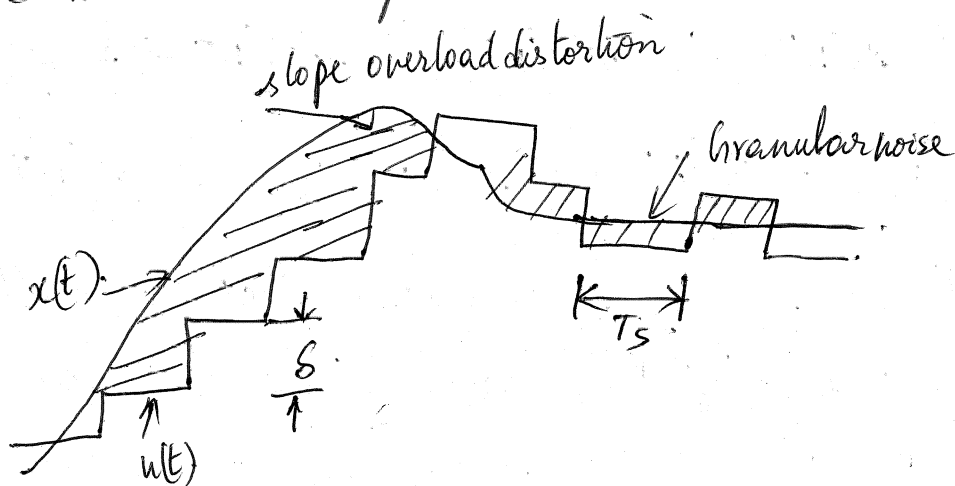 slope overload distortion
Granular noise
x(t)
δ
Ts
u(t)